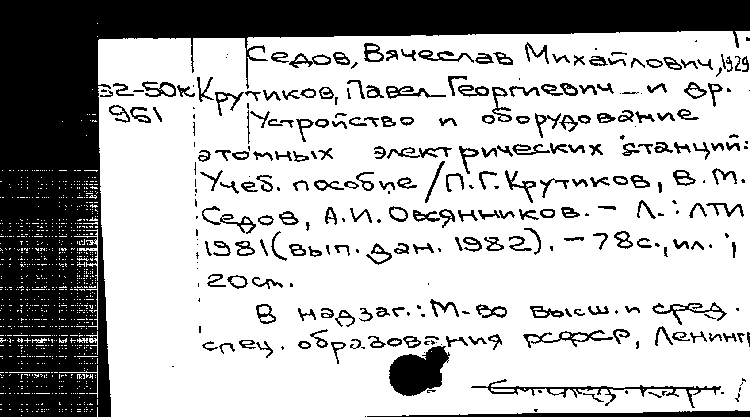 Седов, Вячеслав Михайлович, 1929
32-50к Крутиков, Павел Георгиевич и др.
961
Устройство и оборудование
атомных электрических станций:
Учеб. пособие / П.Г. Крутиков, В.М.
Седов, А.И. Овсянников. - Л.: ЛТИ
1981 (вып. дан. 1982). - 78 с., ил. ;
20 см.
В надзаг.: М-во высш. и сред.
спец. образования РСФСР, Ленингр
См. след. карт.